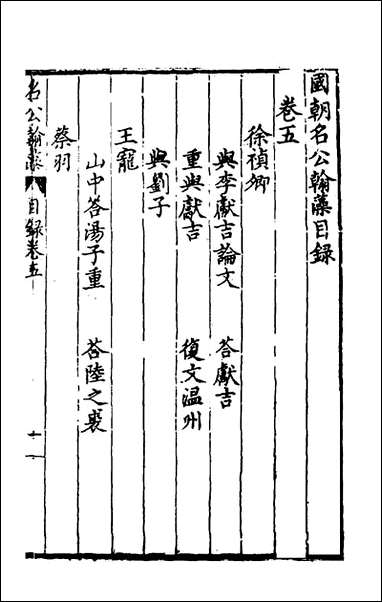 國朝名公翰藻目錄
卷五
徐禎卿
與李獻吉論文 答獻吉
重與獻吉 復文温州
與劉子
王寵
山中答湯子重 答陸之裘
蔡羽
名公翰藻 目錄卷五 十一